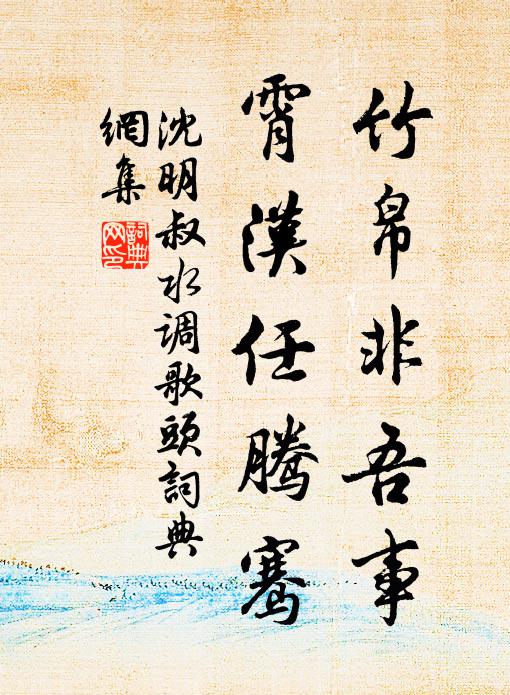 竹帛非吾事
霄漢任騰騫
沈明叔水调歌頭詞典
網集
詞典
网印